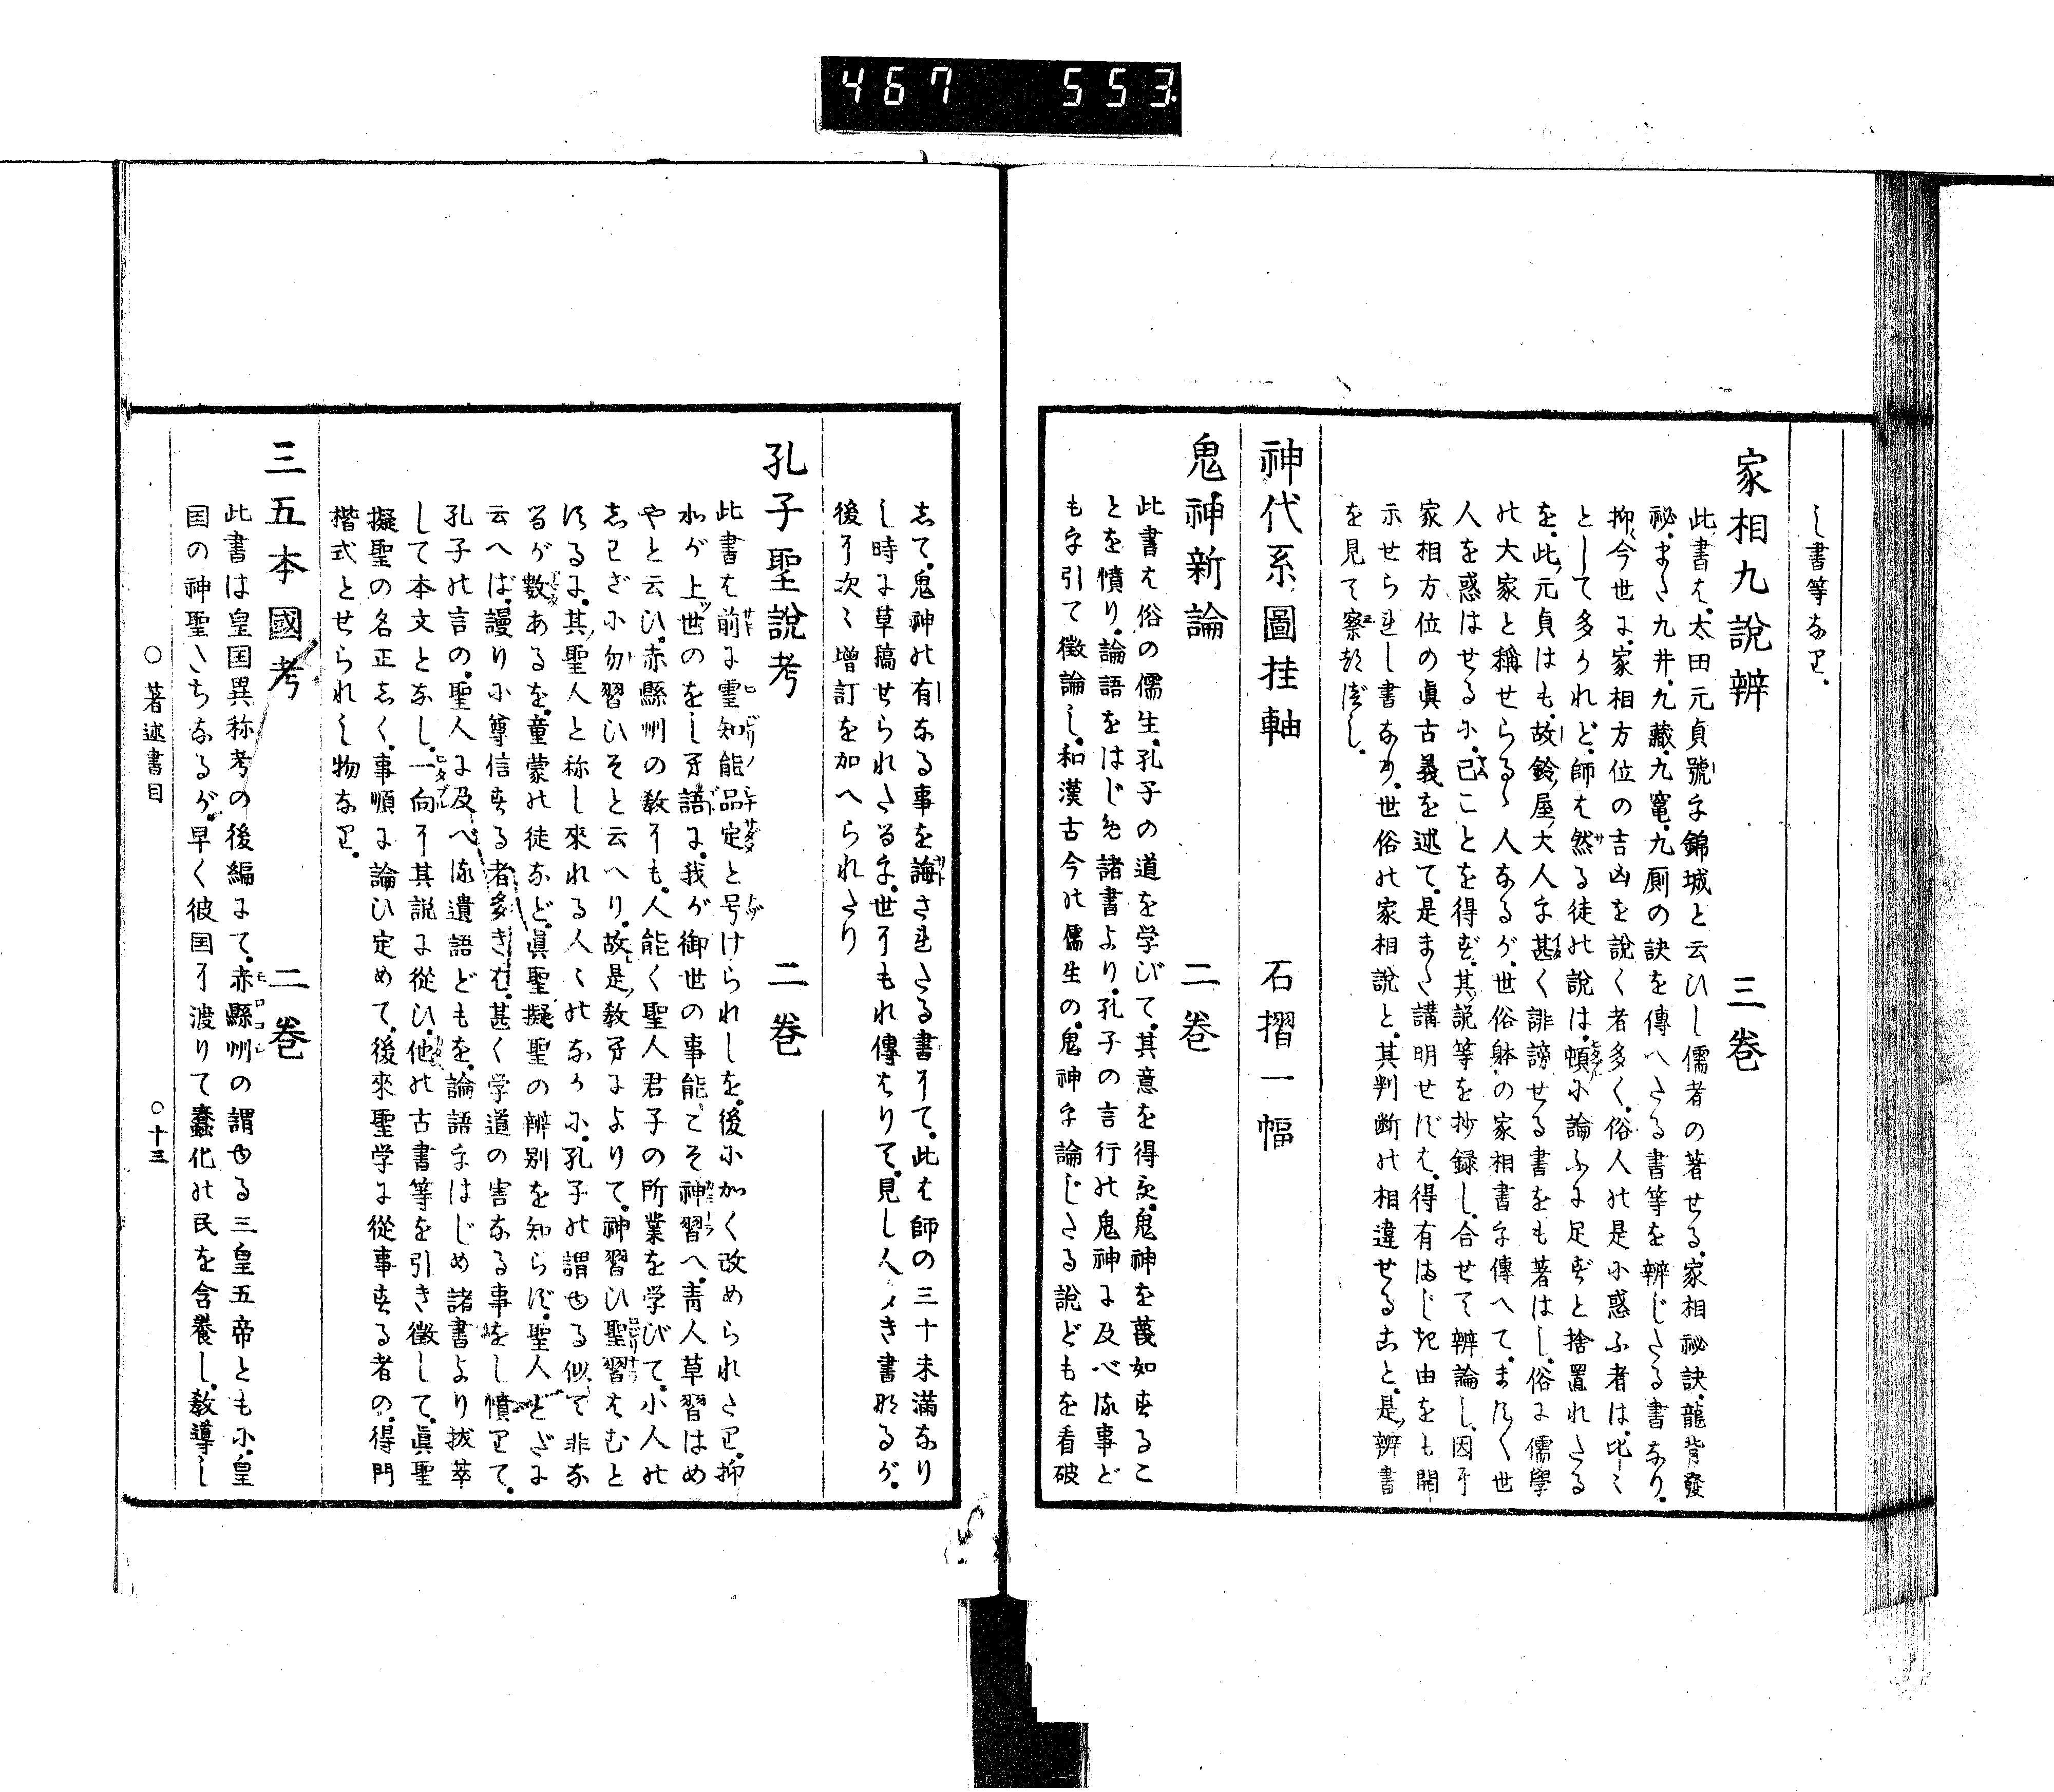 467 553
し書等なり。
家相九說辨 三卷
此書は、太田元貞號を錦城と云ひし儒者の著せる、家相祕訣、龍背發
祕、また九井、九藏、九竃、九厠の訣を傳へたる書等を辨じたる書なり。
抑今世に、家相方位の吉凶を說く者多く、俗人の是に惑ふ者は、比々
として多かれど、師は然る徒の說は、頓に論ふに足ずと捨置れたる
を、此元貞はも、故鈴屋大人を甚く誹謗せる書をも著はし、俗に儒學
の大家と稱せらるゝ人なるが、世俗躰の家相書を傳へて、まだく世
人を惑はせるに、已ことを得ず、其說等を抄録し、合せて辨論し、因に
家相方位の眞古義を述て、是また講明せずは、得有まじき由をも開
示せられし書なり、世俗の家相說と、其判断の相違せること、是辨書
を見て察るべし。
神代系圖挂軸 石摺一幅
鬼神新論 二卷
此書は俗の儒生、孔子の道を学びて、其意を得ず、鬼神を蔑如するこ
とを憤り、論語をはじめ諸書より、孔子の言行の鬼神に及べる事ど
もを引て徴論し、和漢古今の儒生の、鬼神を論じたる說どもを看破
して、鬼神の有なる事を誨されたる書にて、此は師の三十未満なり
し時に草稿せられたるを、世にもれ傳はりて、見し人々き書なるが、
後に次々增訂を加へられたり
孔子聖說考 二卷
此書は前に霊知能品定と号けられしを、後に如く改められたり。抑
水が上世のをしへ語に、我が御世の事能こそ神習へ、青人草習はめ
やと云ひ、赤縣州の教にも、人能く聖人君子の所業を学びて、小人の
しわざに勿習ひそと云へり、故是教へによりて、神習ひ聖習はむと
するに、其聖人と称し來れる人々のなかに、孔子の謂ゆる似て非な
るが數あるを、童蒙の徒など、眞聖擬聖の辨別を知らず、聖人とざに
云へば、謾りに尊信する者多きは、甚く学道の害なる事をし憤りて、
孔子の言の、聖人に及べる遺語どもを、論語をはじめ諸書より拔萃
して本文となし、一向に其説に從ひ、他の古書等を引き徴して、眞聖
擬聖の名正しく、事順に論ひ定めて、後來聖学に從事する者の、得門
楷式とせられし物なり。
三五本國考 二卷
此書は皇国異称考の後編にて、赤縣州の謂ゆる三皇五帝ともに、皇
国の神聖たちなるが、早く彼国に渡りて蠢化の民を含養し、教導し
○著述書目 ○十三